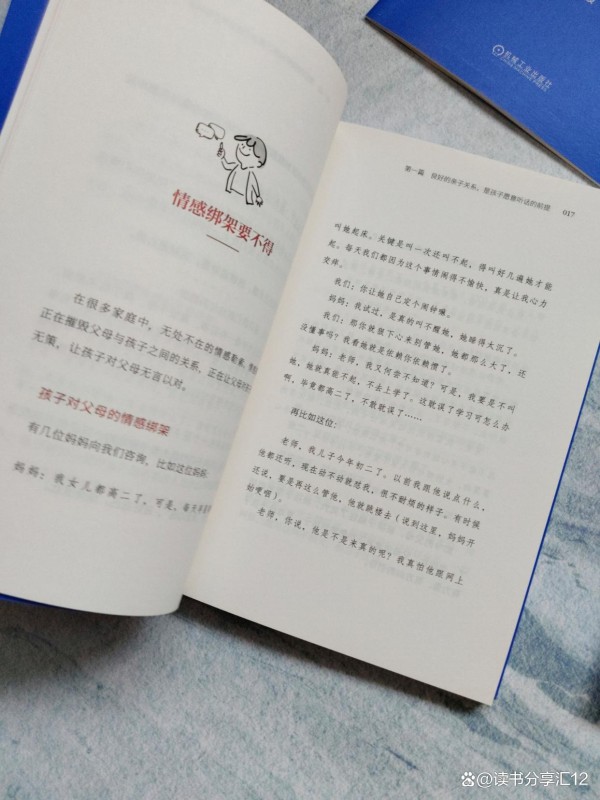 机械工业出版社
CHINA MACHINE PRESS
情感绑架要不得
在很多家庭中，无处不在的情感勒索，
正在摧毁父母与孩子之间的关系，正在让父母
无策，让孩子对父母无言以对。
孩子对父母的情感绑架
有几位妈妈向我们咨询，比如这位妈妈：
妈妈：我女儿都高二了，可是，每天早
第一篇 良好的亲子关系，是孩子愿意听话的前提 017
叫她起床。关键是叫一次还叫不起，得叫好几遍她才能
起。每天我们都因为这个事情闹得不愉快，真是让我心力
交瘁。
我们：你让她自己定个闹钟嘛。
妈妈：我试过，是真的叫不醒她，她睡得太沉了。
我们：那你就狠下心来别管她，她都那么大了，还
没懂事吗？我看她就是依赖你依赖惯了。
妈妈：老师，我又何尝不知道？可是，我要是不叫
她，她就真能不起，不去上学了。这耽误了学习可怎么办
啊，毕竟都高二了，不敢耽误了……
再比如这位：
老师，我儿子今年初二了。以前我跟他说点什么，
他都还听，现在动不动就怼我，很不耐烦的样子。有时候
还说，要是再这么管他，他就跳楼去（说到这里，妈妈开
始哽咽）。
老师，你说，他是不是来真的呢？我真怕他跟网上
头条 @读书分享汇12